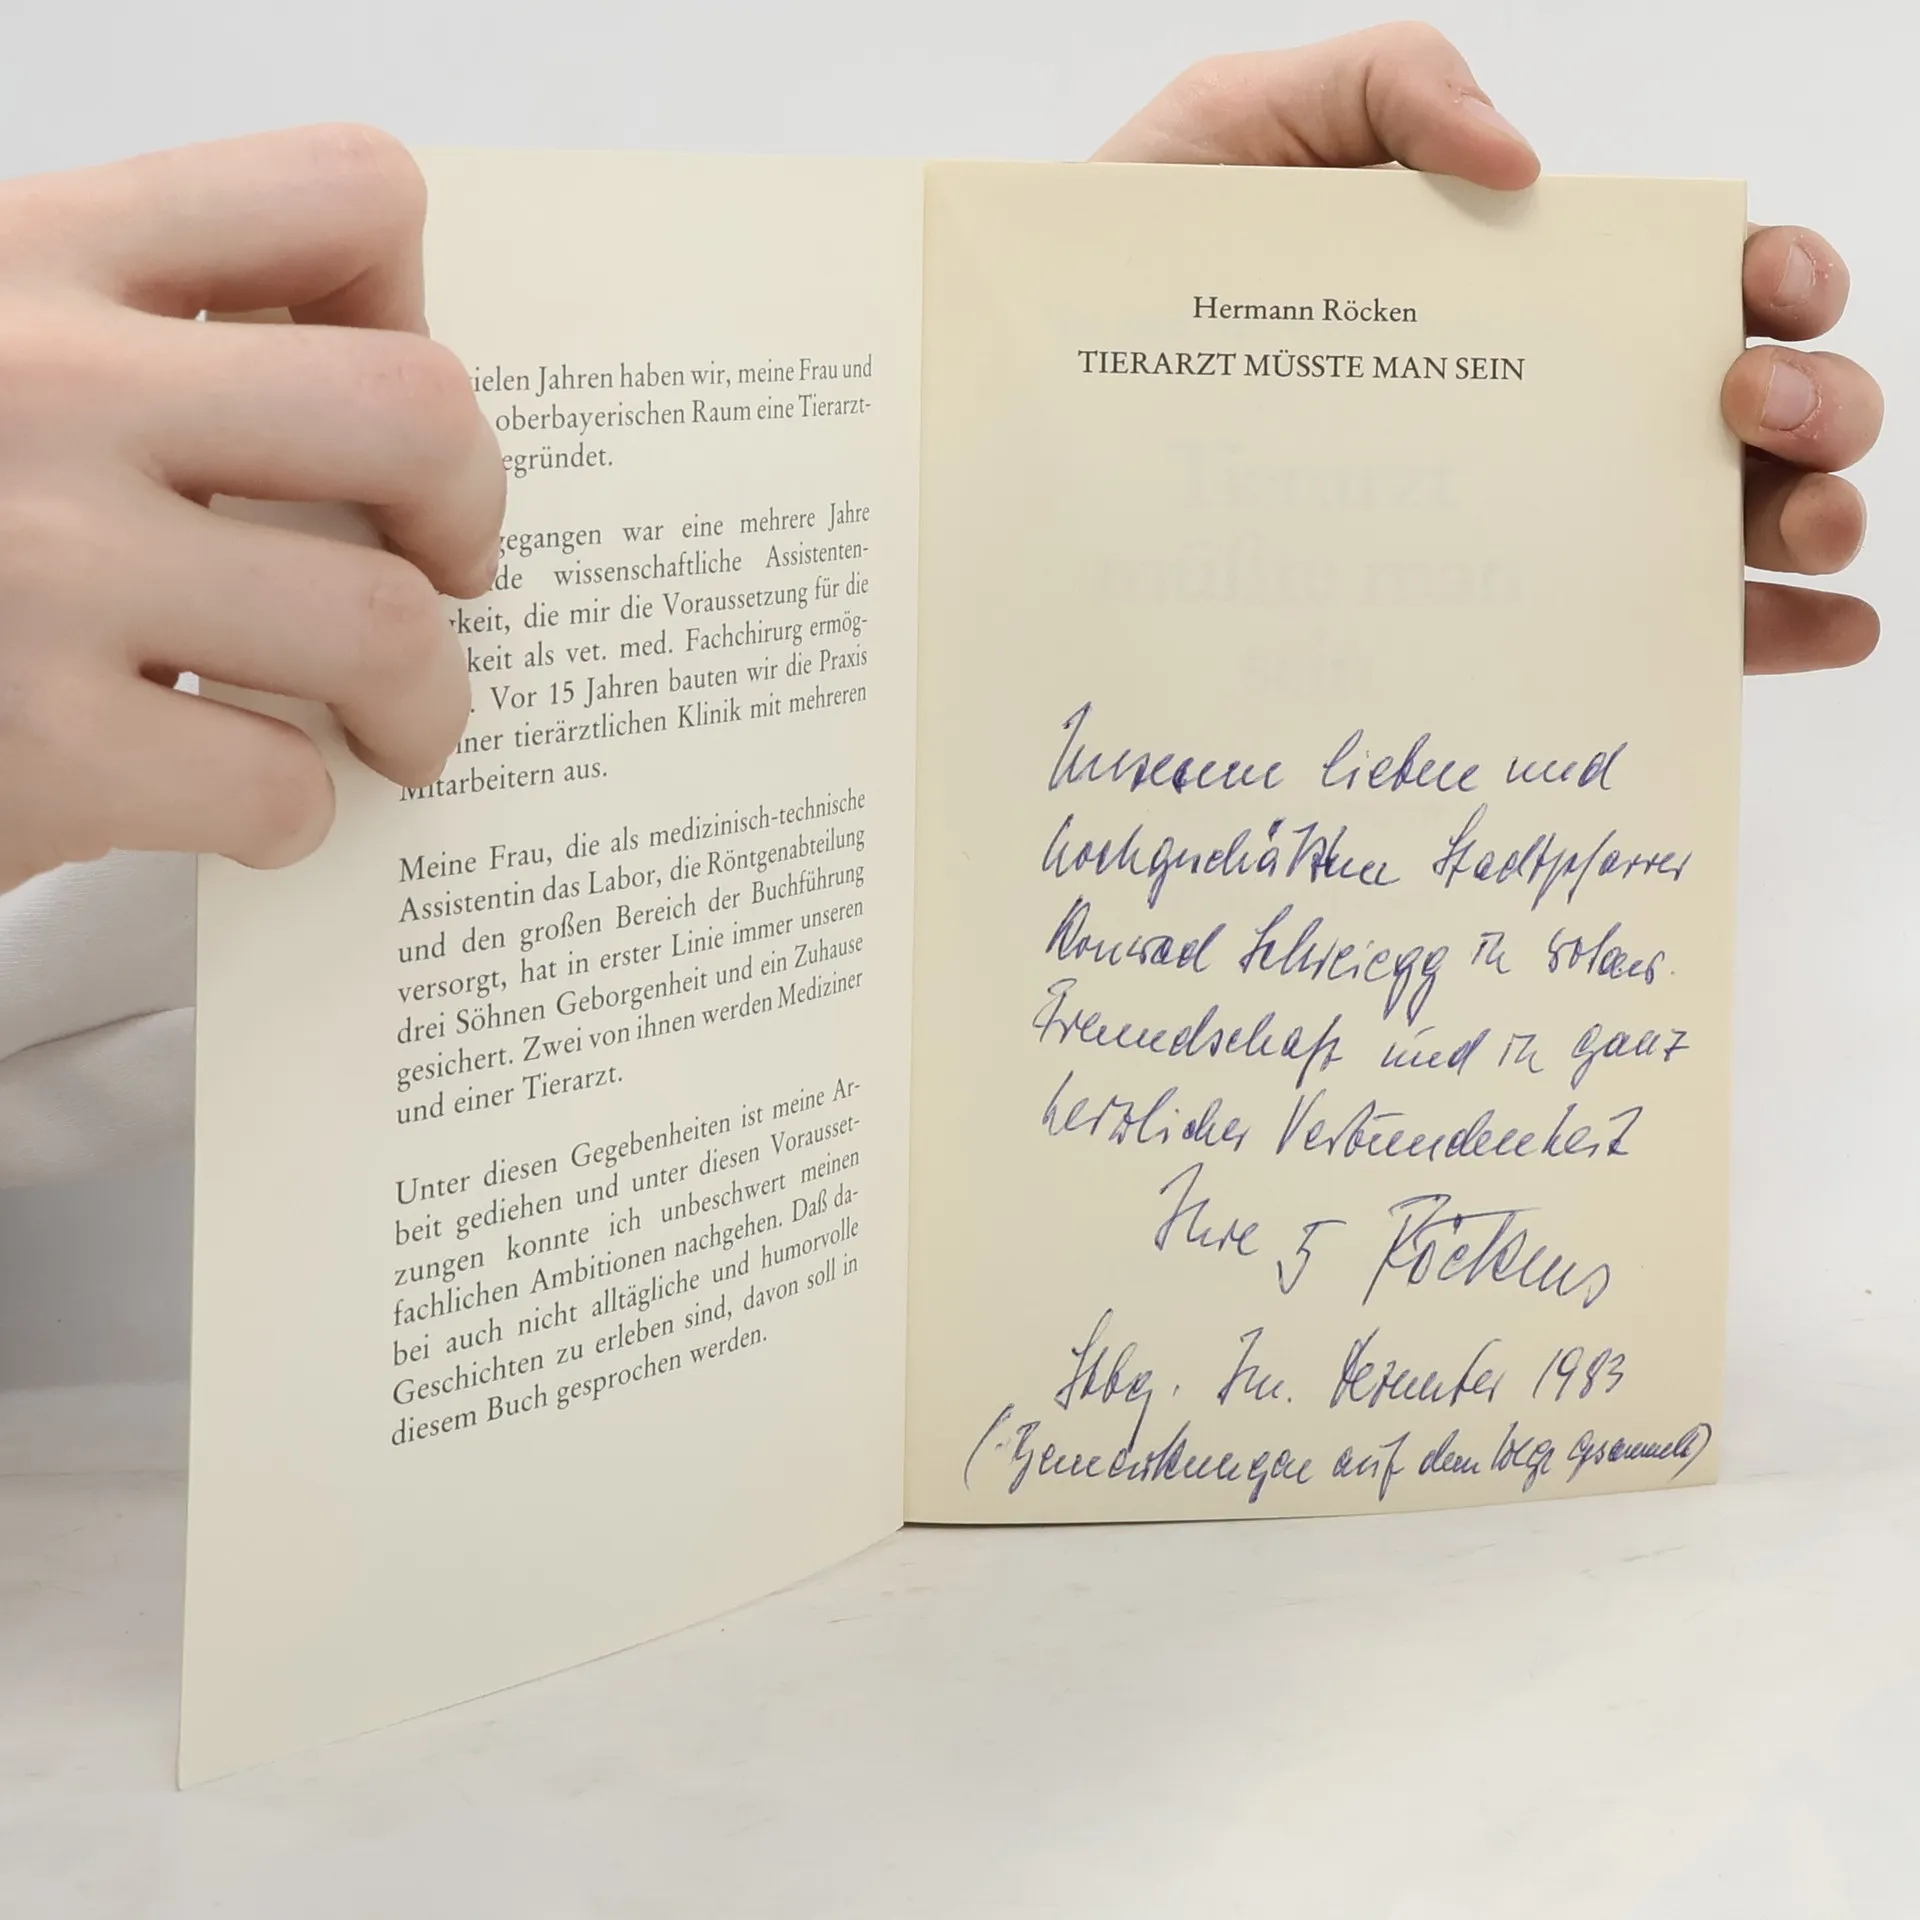 ielen Jahren haben wir, meine Frau und
oberbayerischen Raum eine Tierarzt-
egründet.
gegangen war eine mehrere Jahre
de wissenschaftliche Assistenten-
keit, die mir die Voraussetzung für die
keit als vet. med. Fachchirurg ermög-
. Vor 15 Jahren bauten wir die Praxis
iner tierärztlichen Klinik mit mehreren
Mitarbeitern aus.
Meine Frau, die als medizinisch-technische
Assistentin das Labor, die Röntgenabteilung
und den großen Bereich der Buchführung
versorgt, hat in erster Linie immer unseren
drei Söhnen Geborgenheit und ein Zuhause
gesichert. Zwei von ihnen werden Mediziner
und einer Tierarzt.
Unter diesen Gegebenheiten ist meine Ar-
beit gediehen und unter diesen Vorausset-
zungen konnte ich unbeschwert meinen
fachlichen Ambitionen nachgehen. Daß da-
bei auch nicht alltägliche und humorvolle
Geschichten zu erleben sind, davon soll in
diesem Buch gesprochen werden.
Hermann Röcken
TIERARZT MÜSSTE MAN SEIN
Unserem lieben und
hochgeschätzten Stadtpfarrer
Konrad Schreiegg in
Freundschaft und in ganz
herzlicher Verbundenheit
Ihre 5 Röckens
Stbg. Im Dezember 1983
(Bemerkungen auf dem Wege gesammelt)